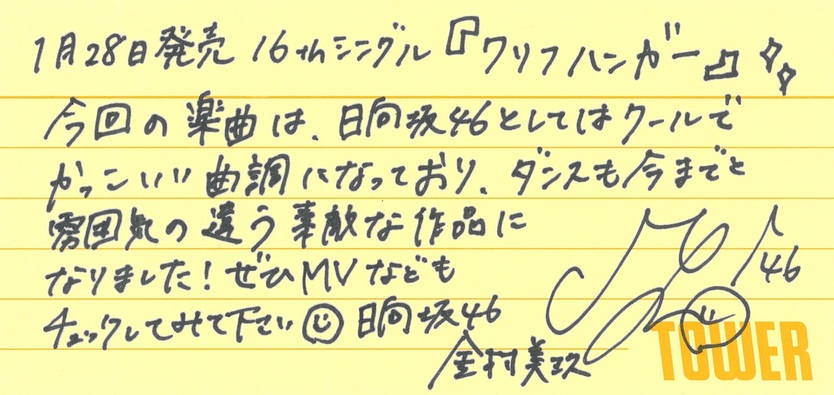 1月28日発売 16thシングル『クリフハンガー』
今回の楽曲は、日向坂46としてはクールで
かっこいい曲調になっており、ダンスも今までと
雰囲気の違う素敵な作品に
なりました！ぜひMVなども
チェックしてみて下さい☺ 日向坂46
金村美玖
46
TOWER